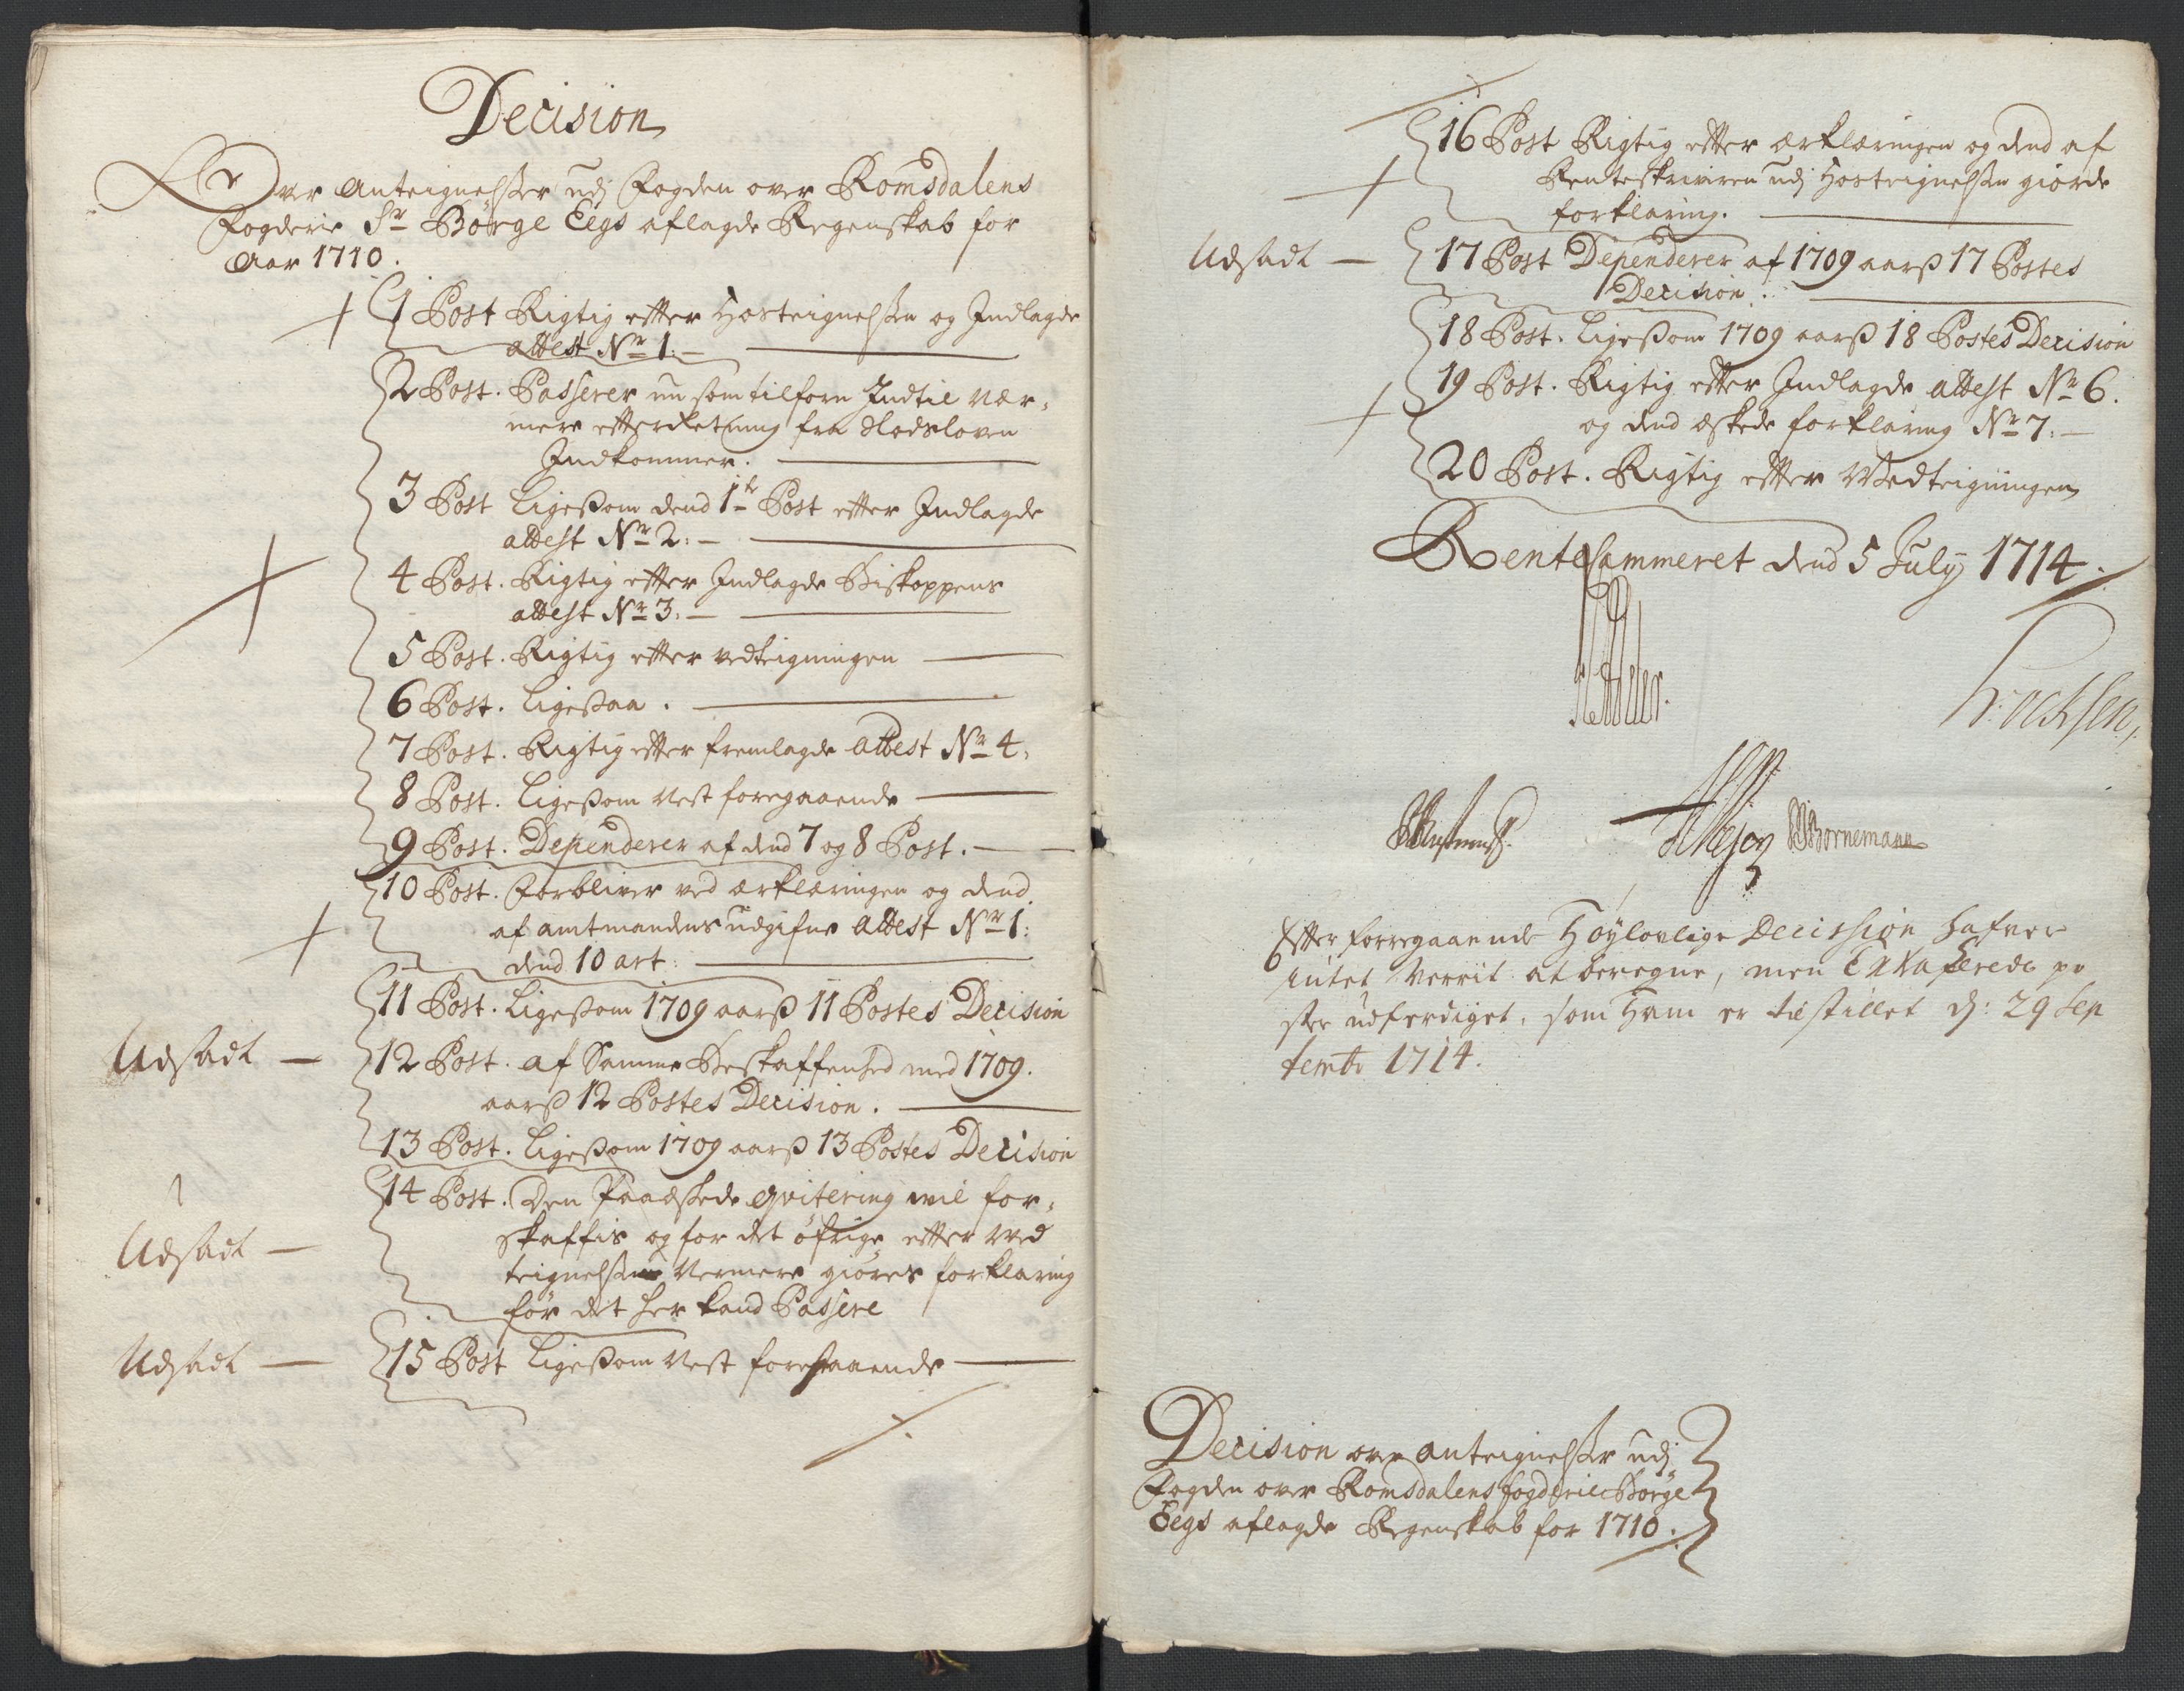 Decision
Over Anteignelser udj Fogden over Romsdalens
Fogderie Sr Börge Eegs aflagde Regenskab for
Aar 1710.
1 Post Rigtig efter Hosteignelsen og Indlagde
attest No 1:
2 Post. Passerer nu som tilforn Indtil nær-
mere efterretning fra Slodsloven
Indkommer.
3 Post Ligesom dend 1te Post efter Indlagde
attest No 2:
4 Post. Rigtig efter Indlagde Biskoppens
attest No 3:
5 Post. Rigtig efter vedteigningen
6 Post. Ligesaa.
7 Post. Rigtig efter fremlagde attest No 4.
8 Post. Ligesom Nest foregaaende
9 Post. Dependerer af dend 7 og 8 Post.
10 Post. Forbliver ved erklæringen og dend
af amtmandens udgifne attest No 1:
dend 10 art:
11 Post. Ligesom 1709 aarß 11 Postes Decision
Udsadt — 12 Post. af Samme Beskaffenhed med 1709.
aarß 12 Postes Decision.
13 Post. Ligesom 1709 aarß 13 Postes Decision
14 Post. Den Paaæskede qvitering vil for-
Udsadt — skaffis og for det öfrige efter Ved
teignelsen Nermere giöres forklaring
för det her kand Passere
Udsadt — 15 Post Ligesom Nest forestaaende
16 Post Rigtig efter erklæringen og dend af
Renteskriveren udj Hosteignelsen giorde
forklaring.
Udsadt — 17 Post Dependerer af 1709 aarß 17 Postes
Decision.
18 Post. Ligesom 1709 aarß 18 Postes Decision
19 Post. Rigtig efter Indlagde attest No 6.
og dend æskede forklaring No 7:
20 Post. Rigtig efter Vedteigningen
Rentekammeret dend 5 July 1714.
Bornemann
Efter forregaaende Höylovlige Decission hafver
intet Verrit at beregne, men Extraherede po
ster udferdiget, som Ham er tilstillet d: 29 Sep
tembr 1714.
Decision over anteignelser udj
Fogden over Romsdalens fogderie Börge
Eegs aflagde Regenskab for 1710.